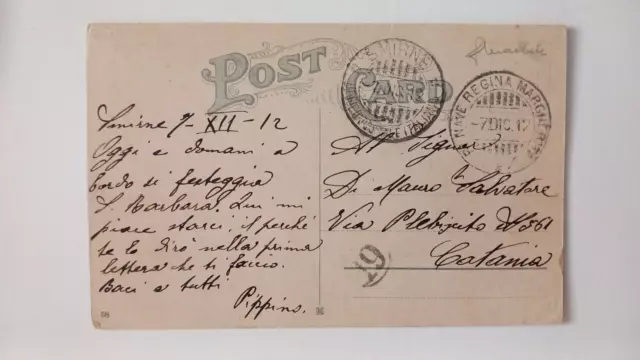 POST CARD
Smirne 7-XII-12
Oggi e domani a
bordo si festeggia
S. Barbara. Qui mi
piace starci, il perché
te lo dirò nella prima
lettera che ti faccio.
Baci a tutti
Pippino.
SMIRNE
R. NAVE REGINA MARGHERITA
-7 DIC. 12
Al Signor
Di Mauro Salvatore
Via Plebiscito N° 561
Catania
19